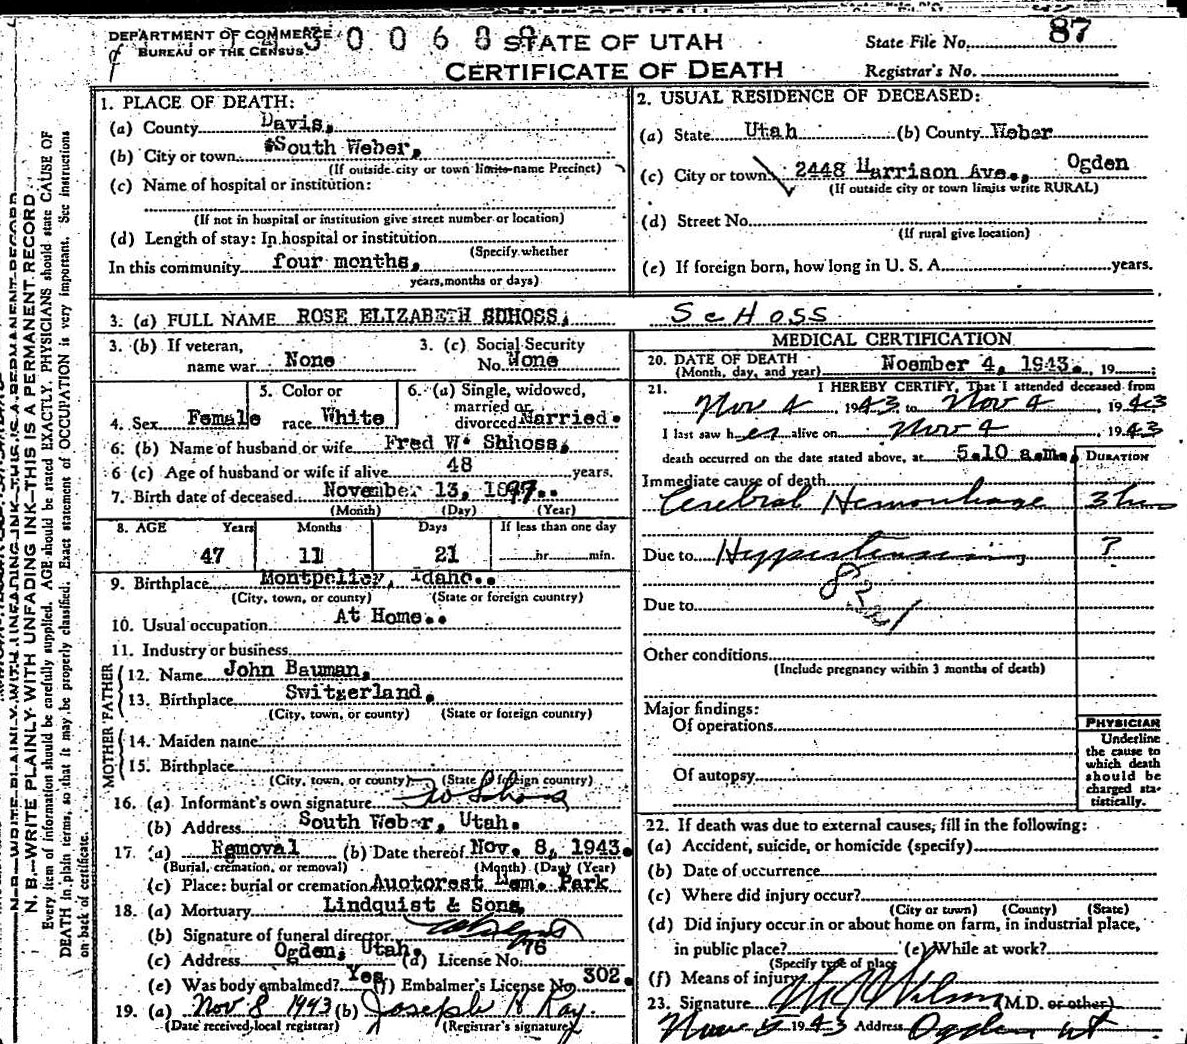 DEPARTMENT OF COMMERCE
BUREAU OF THE CENSUS
STATE OF UTAH
CERTIFICATE OF DEATH
State File No. 87
Registrar's No.
N. B.—WRITE PLAINLY WITH UNFADING INK—THIS IS A PERMANENT RECORD
Every item of information should be carefully supplied. AGE should be stated EXACTLY. PHYSICIANS should state CAUSE OF
DEATH in plain terms, so that it may be properly classified. Exact statement of OCCUPATION is very important. See instructions
on back of certificate.
1. PLACE OF DEATH:
(a) County Davis,
(b) City or town South Weber,
(If outside city or town limits name Precinct)
(c) Name of hospital or institution:
(If not in hospital or institution give street number or location)
(d) Length of stay: In hospital or institution
(Specify whether
In this community four months,
years, months or days)
2. USUAL RESIDENCE OF DECEASED:
(a) State Utah (b) County Weber
(c) City or town 2448 Harrison Ave., Ogden
(If outside city or town limits write RURAL)
(d) Street No.
(If rural give location)
(e) If foreign born, how long in U. S. A. years.
3. (a) FULL NAME ROSE ELIZABETH SDHOSS, ScHoss
3. (b) If veteran,
name war None
3. (c) Social Security
No. None
4. Sex Female
5. Color or
race White
6. (a) Single, widowed,
married or
divorced Married.
6. (b) Name of husband or wife Fred W. Shhoss,
6 (c) Age of husband or wife if alive 48 years.
7. Birth date of deceased November 13, 1897..
(Month) (Day) (Year)
8. AGE Years Months Days If less than one day
47 11 21 hr. min.
9. Birthplace Montpelier, Idaho..
(City, town, or county) (State or foreign country)
10. Usual occupation At Home..
11. Industry or business
FATHER
12. Name John Bauman,
13. Birthplace Switzerland,
(City, town, or county) (State or foreign country)
MOTHER
14. Maiden name
15. Birthplace
(City, town, or county) (State or foreign country)
16. (a) Informant's own signature
(b) Address South Weber, Utah.
17. (a) Removal (b) Date thereof Nov. 8, 1943.
(Burial, cremation, or removal) (Month) (Day) (Year)
(c) Place: burial or cremation Auotorest Mem. Park
18. (a) Mortuary Lindquist & Sons,
(b) Signature of funeral director
(c) Address Ogden, Utah. (d) License No. 76
(e) Was body embalmed? Yes (f) Embalmer's License No. 302.
19. (a) Nov 8 1943 (b) Joseph H Ray.
(Date received local registrar) (Registrar's signature)
MEDICAL CERTIFICATION
20. DATE OF DEATH
(Month, day, and year) Noember 4, 1943. , 19 ;
21. I HEREBY CERTIFY, That I attended deceased from
Nov 4 , 1943 to Nov 4 , 1943
I last saw her alive on Nov 4 , 1943
death occurred on the date stated above, at 5.10 a.m.
DURATION
Immediate cause of death
Cerebral Hemorrhage 3 hrs
Due to Hypertension ?
Due to
Other conditions
(Include pregnancy within 3 months of death)
Major findings:
Of operations
Of autopsy
PHYSICIAN
Underline
the cause to
which death
should be
charged sta-
tistically.
22. If death was due to external causes, fill in the following:
(a) Accident, suicide, or homicide (specify)
(b) Date of occurrence
(c) Where did injury occur?
(City or town) (County) (State)
(d) Did injury occur in or about home on farm, in industrial place,
in public place? (e) While at work?
(Specify type of place
(f) Means of injury
23. Signature (M.D. or other)
1943 Address Ogden Ut